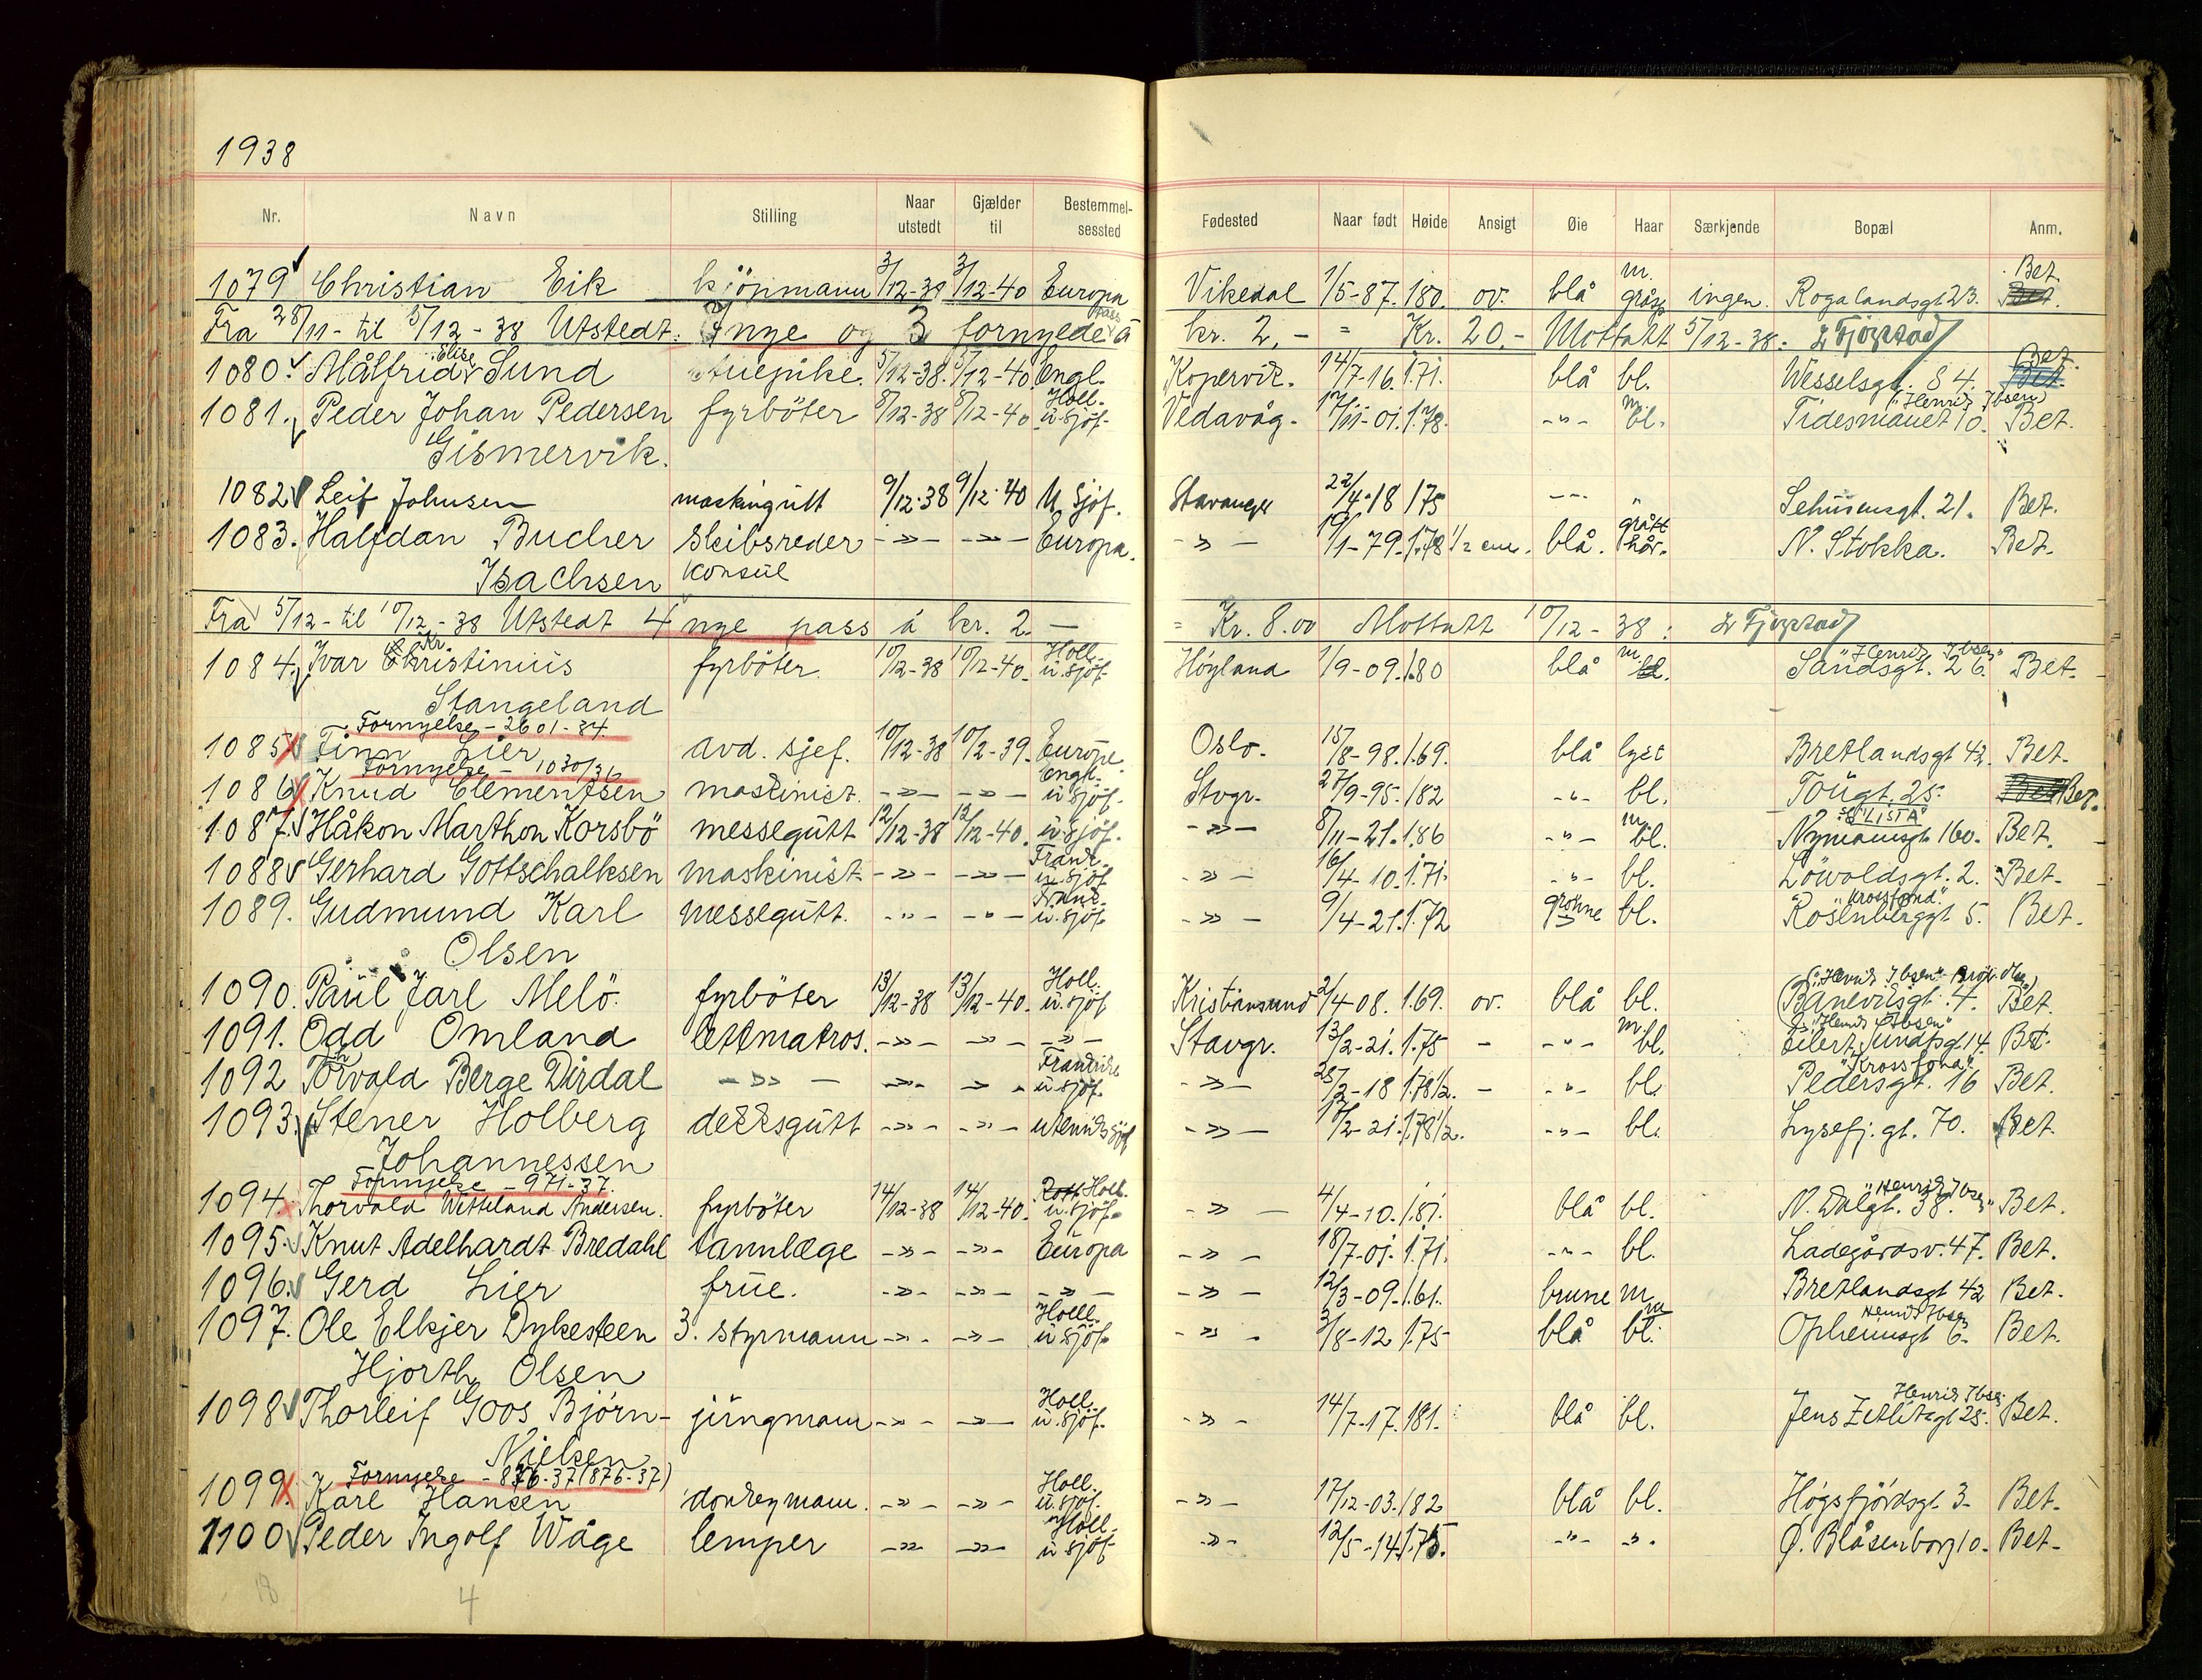 1938
Nr. Navn Stilling Naar utstedt Gjælder til Bestemmelsessted Fødested Naar født Høide Ansigt Øie Haar Særkjende Bopæl Anm.
1079 Christian Eik kjöpmann 3/12-38 3/12-40 Europa Vikedal 1/5-87. 180. ov. blå m. gråsp ingen. Rogalandsgt 23. Bet.
Fra 28/11- til 5/12-38 Utstedt: 7 nye og 3 fornyede pass á kr. 2,- = Kr. 20,- Mottatt 5/12-38.
1080. Målfrid Elise Sund stuepike. 5/12-38. 5/12-40. Engl. Kopervik. 14/7-16. 1.71. blå bl. Wesselsgt. 84. Bet.
1081. Peder Johan Pedersen fyrböter 8/12-38 8/12-40 Holl. u. sjöf. Vedavåg. 17/11-01. 1.78. -"- m. bl. "Henrik Ibsen" Tidesmauet 10. Bet.
Gismervik.
1082 Leif Johnsen maskingutt 9/12-38 9/12-40 U. Sjöf. Stavanger 22/4-18 175 -"- " Sehusensgt. 21. Bet.
1083. Halfdan Bucher Skibsreder -»- -»- Europa. -»- 19/1-79. 1.78 1/2 cm. blå. grått hår. N. Stokka. Bet.
Isachsen konsul
Fra 5/12- til 10/12-38 Utstedt 4 nye pass á kr. 2.- = Kr. 8.00 Mottatt 10/12-38:
1084. Ivar Kr. Christinius fyrböter. 10/12-38 10/12-40. Holl. u. sjöf. Höyland 1/9-09. 1.80 blå m. bl. "Henrik Ibsen" Sandsgt. 26. Bet.
Stangeland
Fornyelse - 2601-34.
1085 Finn Lier avd. sjef. 10/12-38 10/2-39. Europa. Oslo. 15/8-98. 1.69. blå lyst Bretlandsgt 42. Bet.
Fornyelse - 1030/36
1086 Knud Clementsen maskinist. -»- -»- Engl. u sjöf. Stvgr. 27/9-95. 182 -"- bl. Tougt. 25. Bet.
1087. Håkon Marthon Korsbö messegutt 12/12-38 12/12-40. u. sjöf. -»- 8/11-21. 1.86 -"- m bl. "LISTA" Nymansgt 160. Bet.
1088 Gerhard Gottschalksen maskinist. -»- -»- Frankr. u. sjöf -»- 16/4-10. 1.71. -"- bl. Lövoldsgt. 2. Bet.
1089. Gudmund Karl messegutt. -"- -"- Frankr. u. sjöf -»- 9/4-21. 1.72 gröhne bl. "Krossfond." Rosenberggt 5. Bet.
Olsen
1090. Paul Jarl Melö. fyrböter 13/12-38 13/12-40. Holl. u. sjöf Kristiansund 2/4-08. 1.69. ov. blå bl. ("Henrik Ibsen" Banevigsgt. 4. Bet.
1091. Odd Omland lettmatros. -»- -»- -»- Stavgr. 13/2-21. 1.75 - -"- m bl. "Henrik Ibsen" Eilert Sundsgt. 14. Bet.
1092 Thorvald Berge Dirdal -»- -»- -»- Frankrike u sjöf. -»- 28/2-18 1.78 1/2. - -"- bl. "Krossfond" Pedersgt. 16 Bet.
1093. Stener Holberg dekksgutt -»- -»- utenriks sjöf -»- 17/2-21. 1.78 1/2. -"- bl. Lysefj. gt. 70. Bet.
Johannessen
Fornyelse - 971-37.
1094. Thorvald Witteland Andersen. fyrböter 14/12-38 14/12-40. Holl. u. sjöf. -»- 4/4-10. 1.81. blå bl. "Henrik Ibsen" N. Dalgt. 38. Bet.
1095. Knut Adelhardt Bredahl tannlæge -»- -»- Europa -»- 18/7-01. 1.71. -"- bl. Ladegårdsv. 47. Bet.
1096. Gerd Lier frue. -»- -»- -»- -»- 12/3-09. 1.61. brune m Bretlandsgt 42 Bet.
1097. Ole Elkjer Dykesteen 3. styrmann -»- -»- Holl. u sjöf. -»- 3/8-12 1.75 blå m bl. Henrik Ibsen Opheimsgt 6. Bet.
Hjorth Olsen
1098 Thorleif Goos Bjørn- jungmann -»- -»- Holl. u. sjöf. -»- 14/7-17. 181. blå bl. Henrik Ibsen Jens Zetlitzgt 28. Bet.
Nielsen
Fornyelse - 876-37 (876-37)
1099. Karl Hansen donkeymann. -»- -»- Holl. u. sjöf. -»- 17/12-03. 182 blå bl. Högsfjordsgt. 3. Bet.
1100 Peder Ingolf Wåge lemper -»- -»- Holl. u sjöf -»- 12/5-14. 1.75. -"- -"- Ø. Blåsenborg 10. Bet.
18 4